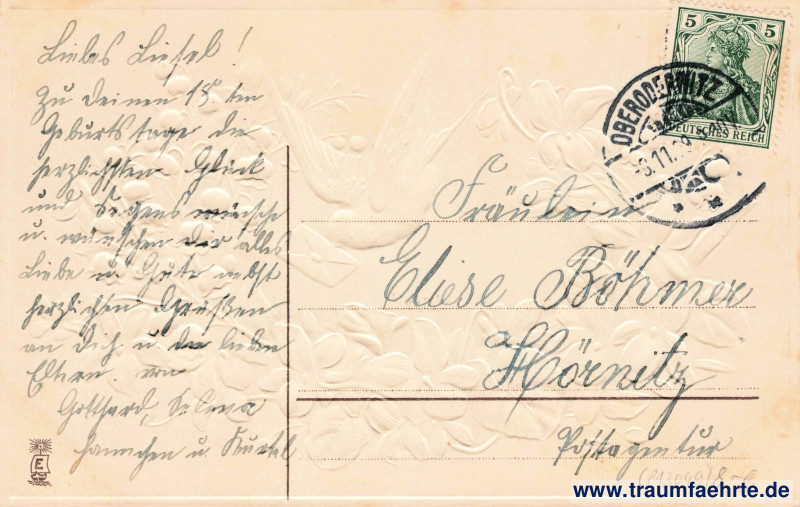 Liebes Liesel!
Zu deinen 18. ten
Geburtstage die
herzlichsten Glück
und Segenswünsche
u. wünschen dir alles
Liebe u. Gute nebst
herzlichen Grüßen
an dich u. die lieben
Eltern. von
Gotthard, Selma
Hannchen u. Kurtel
5 5
DEUTSCHES REICH
OBERODERWITZ
Fräulein
Eliese Böhmer
Hörnitz
Postagentur
E
www.traumfaehrte.de